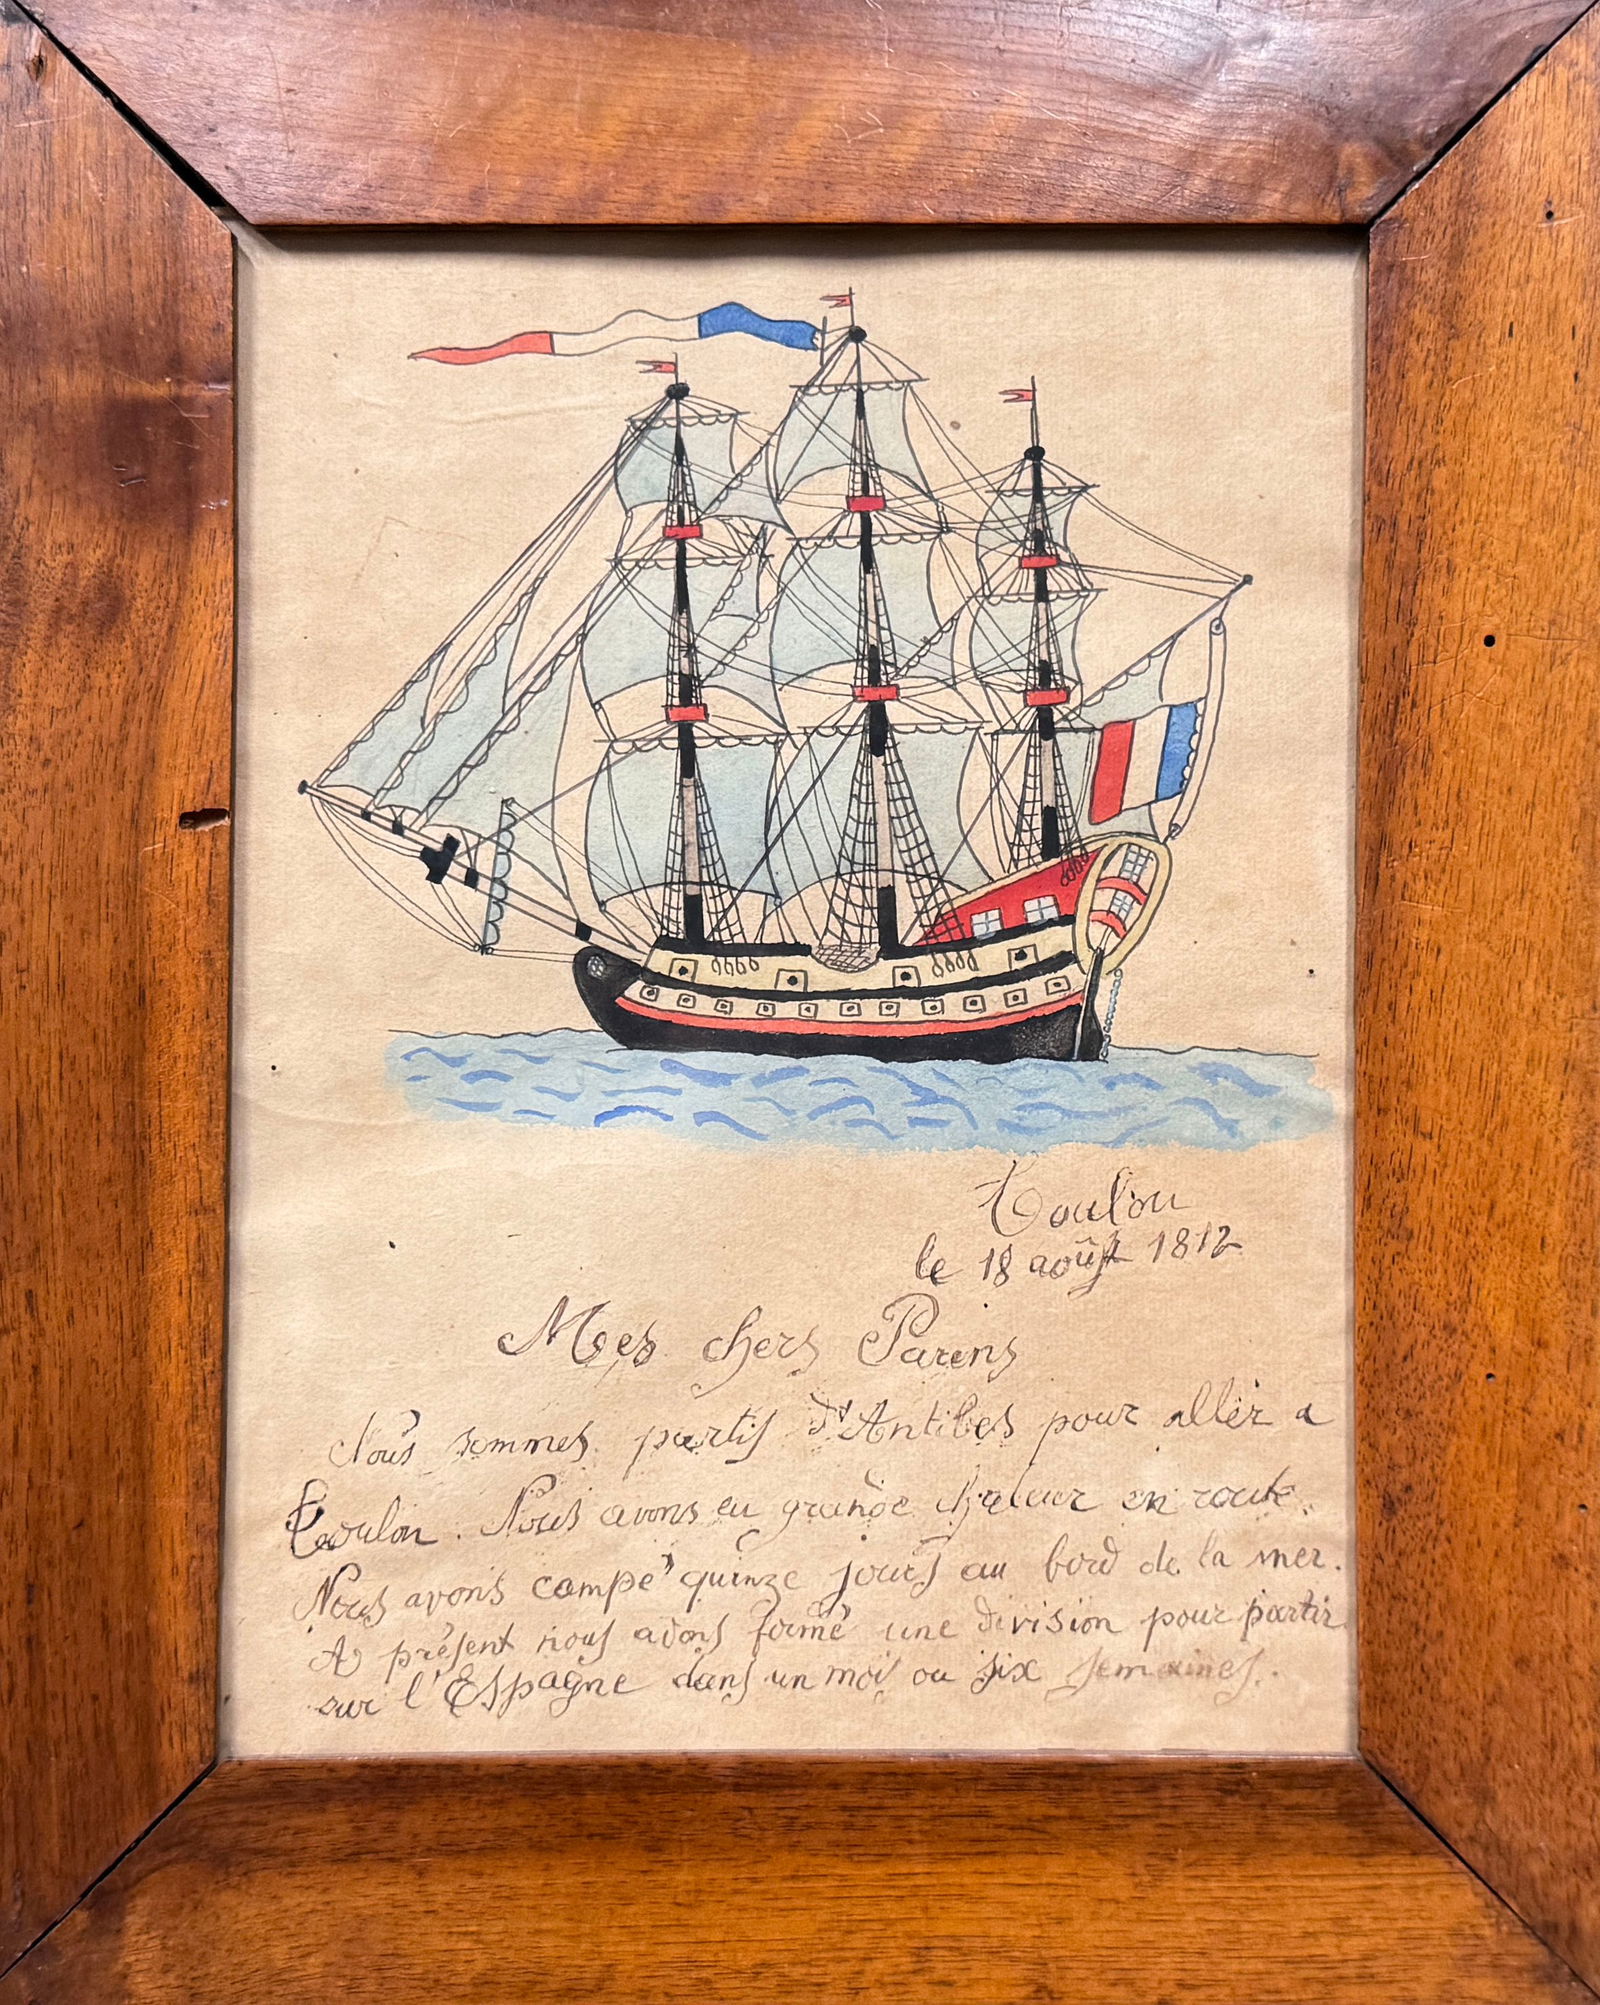 Toulon
le 18 août 1812
Mes chers Parens
Nous sommes partis d'Antibes pour aller a
Toulon. Nous avons eu grande chaleur en route.
Nous avons campé quinze jours au bord de la mer.
A présent nous avons formé une division pour partir
sur l'Espagne dans un mois ou six semaines.